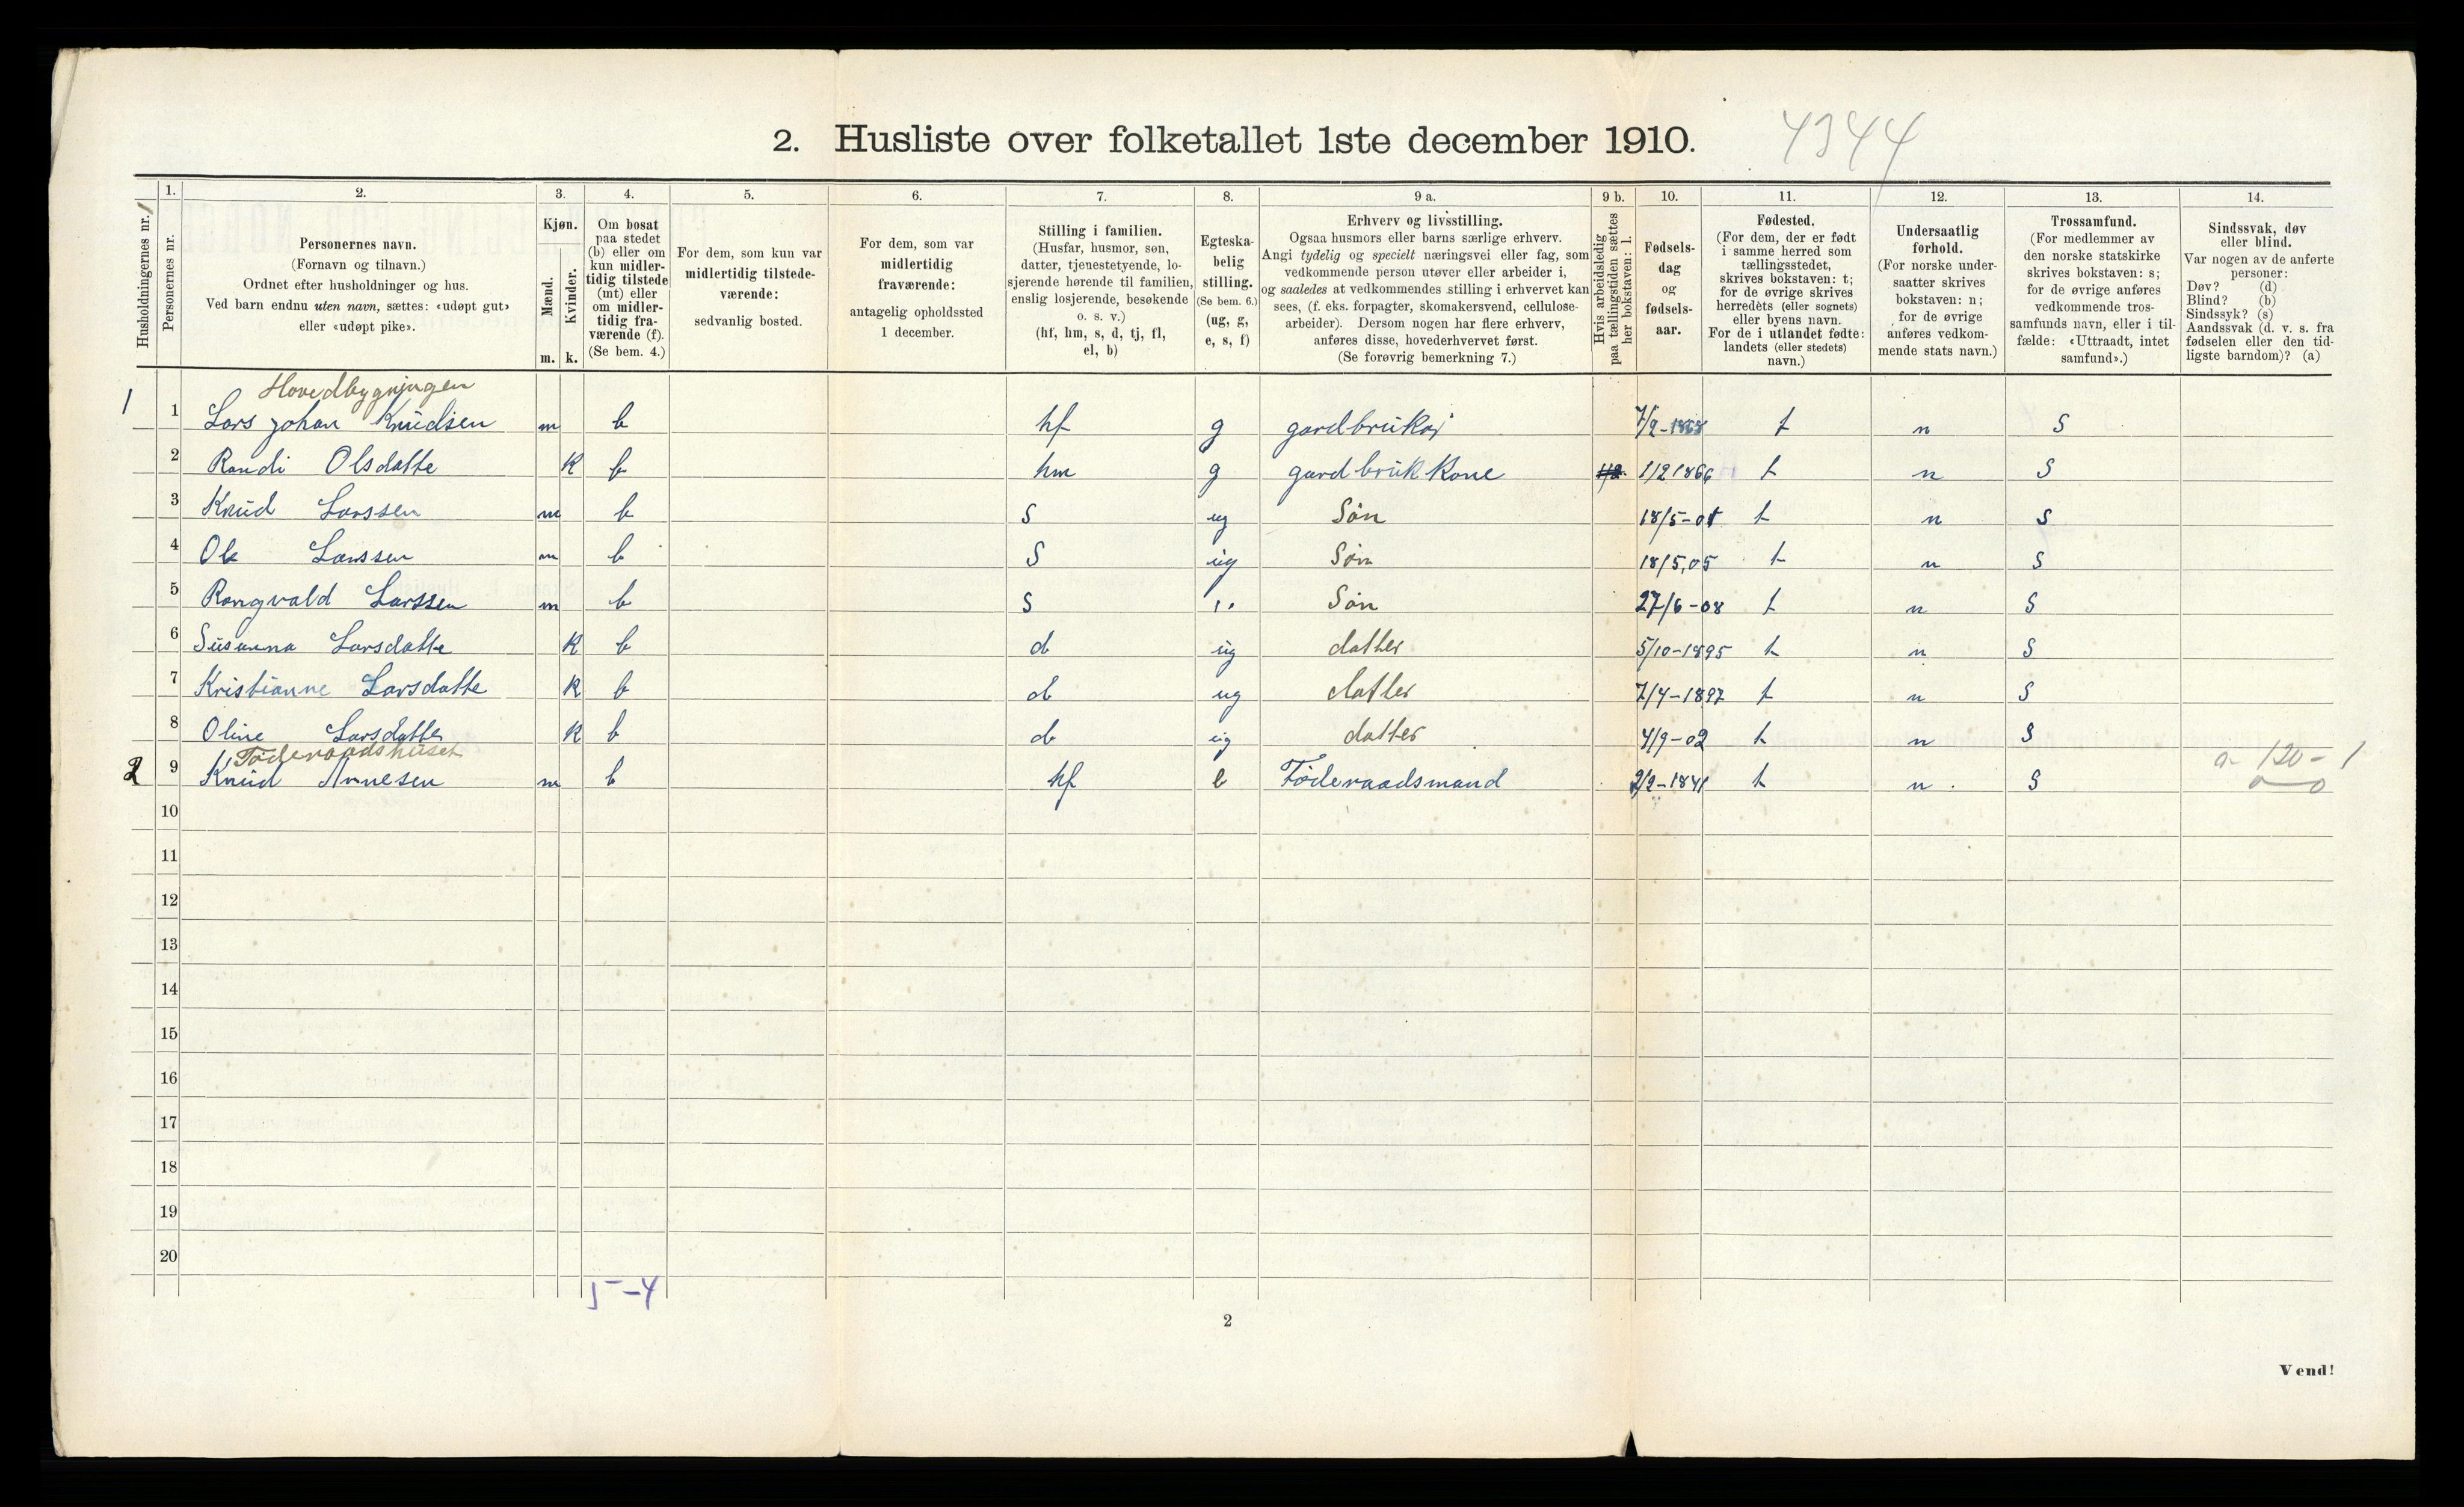 2. Husliste over folketallet 1ste december 1910.
4344
1. 2. 3. 4. 5. 6. 7. 8. 9 a. 9 b. 10. 11. 12. 13. 14.
Husholdningernes nr.
Personernes nr.
Personernes navn.
(Fornavn og tilnavn.)
Ordnet efter husholdninger og hus.
Ved barn endnu uten navn, sættes: «udøpt gut»
eller «udøpt pike».
Kjøn.
Mænd.
Kvinder.
m. k.
Om bosat
paa stedet
(b) eller om
kun midler-
tidig tilstede
(mt) eller
om midler-
tidig fra-
værende (f).
(Se bem. 4.)
For dem, som kun var
midlertidig tilstede-
værende:
sedvanlig bosted.
For dem, som var
midlertidig
fraværende:
antagelig opholdssted
1 december.
Stilling i familien.
(Husfar, husmor, søn,
datter, tjenestetyende, lo-
sjerende hørende til familien,
enslig losjerende, besøkende
o. s. v.)
(hf, hm, s, d, tj, fl,
el, b)
Egteska-
belig
stilling.
(Se bem. 6.)
(ug, g,
e, s, f)
Erhverv og livsstilling.
Ogsaa husmors eller barns særlige erhverv.
Angi tydelig og specielt næringsvei eller fag, som
vedkommende person utøver eller arbeider i,
og saaledes at vedkommendes stilling i erhvervet kan
sees, (f. eks. forpagter, skomakersvend, cellulose-
arbeider). Dersom nogen har flere erhverv,
anføres disse, hovederhvervet først.
(Se forøvrig bemerkning 7.)
Hvis arbeidsledig
paa tællingstiden sættes
her bokstaven: l.
Fødsels-
dag
og
fødsels-
aar.
Fødested.
(For dem, der er født
i samme herred som
tællingsstedet,
skrives bokstaven: t;
for de øvrige skrives
herredets (eller sognets)
eller byens navn.
For de i utlandet fødte:
landets (eller stedets)
navn.)
Undersaatlig
forhold.
(For norske under-
saatter skrives
bokstaven: n;
for de øvrige
anføres vedkom-
mende stats navn.)
Trossamfund.
(For medlemmer av
den norske statskirke
skrives bokstaven: s;
for de øvrige anføres
vedkommende tros-
samfunds navn, eller i til-
fælde: «Uttraadt, intet
samfund».)
Sindssvak, døv
eller blind.
Var nogen av de anførte
personer:
Døv? (d)
Blind? (b)
Sindssyk? (s)
Aandssvak (d. v. s. fra
fødselen eller den tid-
ligste barndom)? (a)
Hovedbygningen
1 1 Lars Johan Knudsen m b hf g gardbruker 7/2-1868 t n S
2 Randi Olsdatte K b hm g gardbruk Kone 1/2 1866 t n S
3 Knud Larssen m b S ug Søn 18/5-01 t n S
4 Ole Larssen m b S ug Søn 18/5,05 t n S
5 Rangvald Larssen m b S ,, Søn 27/6-08 t n S
6 Susanna Larsdatte K b d ug datter 5/10-1895 t n S
7 Kristianne Larsdatte K b d ug datter 7/4-1897 t n S
8 Oline Larsdatter K b d ug datter 4/9-02 t n S
Føderaadshuset
2 9 Knud Arnesen m b hf e Føderaadsmand 2/2-1841 t n S
a 120-1
0 0
10
11
12
13
14
15
16
17
18
19
20
5-4
2
Vend!